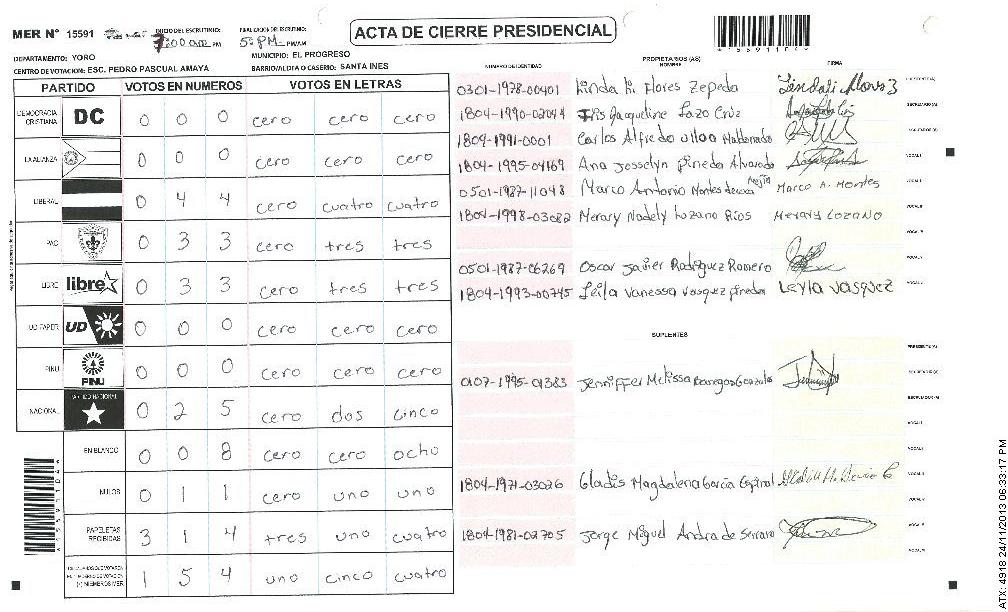 MER N° 15591
INICIO DEL ESCRUTINIO:
FINALIZACION DEL ESCRUTINIO:
PM
5:PM PM/AM
ACTA DE CIERRE PRESIDENCIAL
DEPARTAMENTO: YORO
MUNICIPIO: EL PROGRESO
CENTRO DE VOTACION: ESC. PEDRO PASCUAL AMAYA
BARRIO/ALDEA O CASERIO: SANTA INES
PARTIDO VOTOS EN NUMEROS VOTOS EN LETRAS
DEMOCRACIA CRISTIANA DC 0 0 0 cero cero cero
LA ALIANZA 0 0 0 cero cero cero
LIBERAL 0 4 4 cero cuatro cuatro
PAC 0 3 3 cero tres tres
LIBRE libre 0 3 3 cero tres tres
UD FAPER UD 0 0 0 cero cero cero
PINU PINU 0 0 0 cero cero cero
NACIONAL PARTIDO NACIONAL 0 2 5 cero dos cinco
EN BLANCO 0 0 8 cero cero ocho
NULOS 0 1 1 cero uno uno
PAPELETAS RECIBIDAS 3 1 4 tres uno cuatro
1 5 4 uno cinco cuatro
NUMERO DE IDENTIDAD
PROPIETARIOS (AS)
NOMBRE
FIRMA
0301-1978-00401 Linda Li Flores Zepeda
1804-1990-02044 Iris Jacqueline Lazo Cruz
1804-1991-0001 Carlos Alfredo Ulloa Maldonado
1804-1995-04169 Ana Josselyn Pineda Alvarado
0501-1987-11048 Marco Antonio Montes de oca Mejia Marco A. Montes
1804-1998-03082 Merary Nadely Lozano Rios Merary Lozano
0501-1987-06269 Oscar Javier Rodriguez Romero
1804-1993-00745 Leila Vanessa Vasquez Pineda Leyla Vasquez
SUPLENTES
0107-1995-01383 Jenniffer Melissa Banegas Gonzales
1804-1971-03026 Gladis Magdalena Garcia Espinal
1804-1981-02705 Jorge Miguel Andrade Serrano
ATX: 4918 24/11/2013 06:33:17 PM